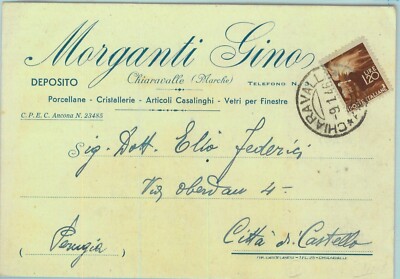 Morganti Gino
DEPOSITO
Chiaravalle (Marche)
TELEFONO N.
Porcellane - Cristallerie - Articoli Casalinghi - Vetri per Finestre
C.P.E.C. Ancona N. 23485
LIRE
1,20
CHIARAVALL
9.1.46
Sig. Dott. Elio Federici
Via Oberdan 4-
(Perugia)
Città di Castello